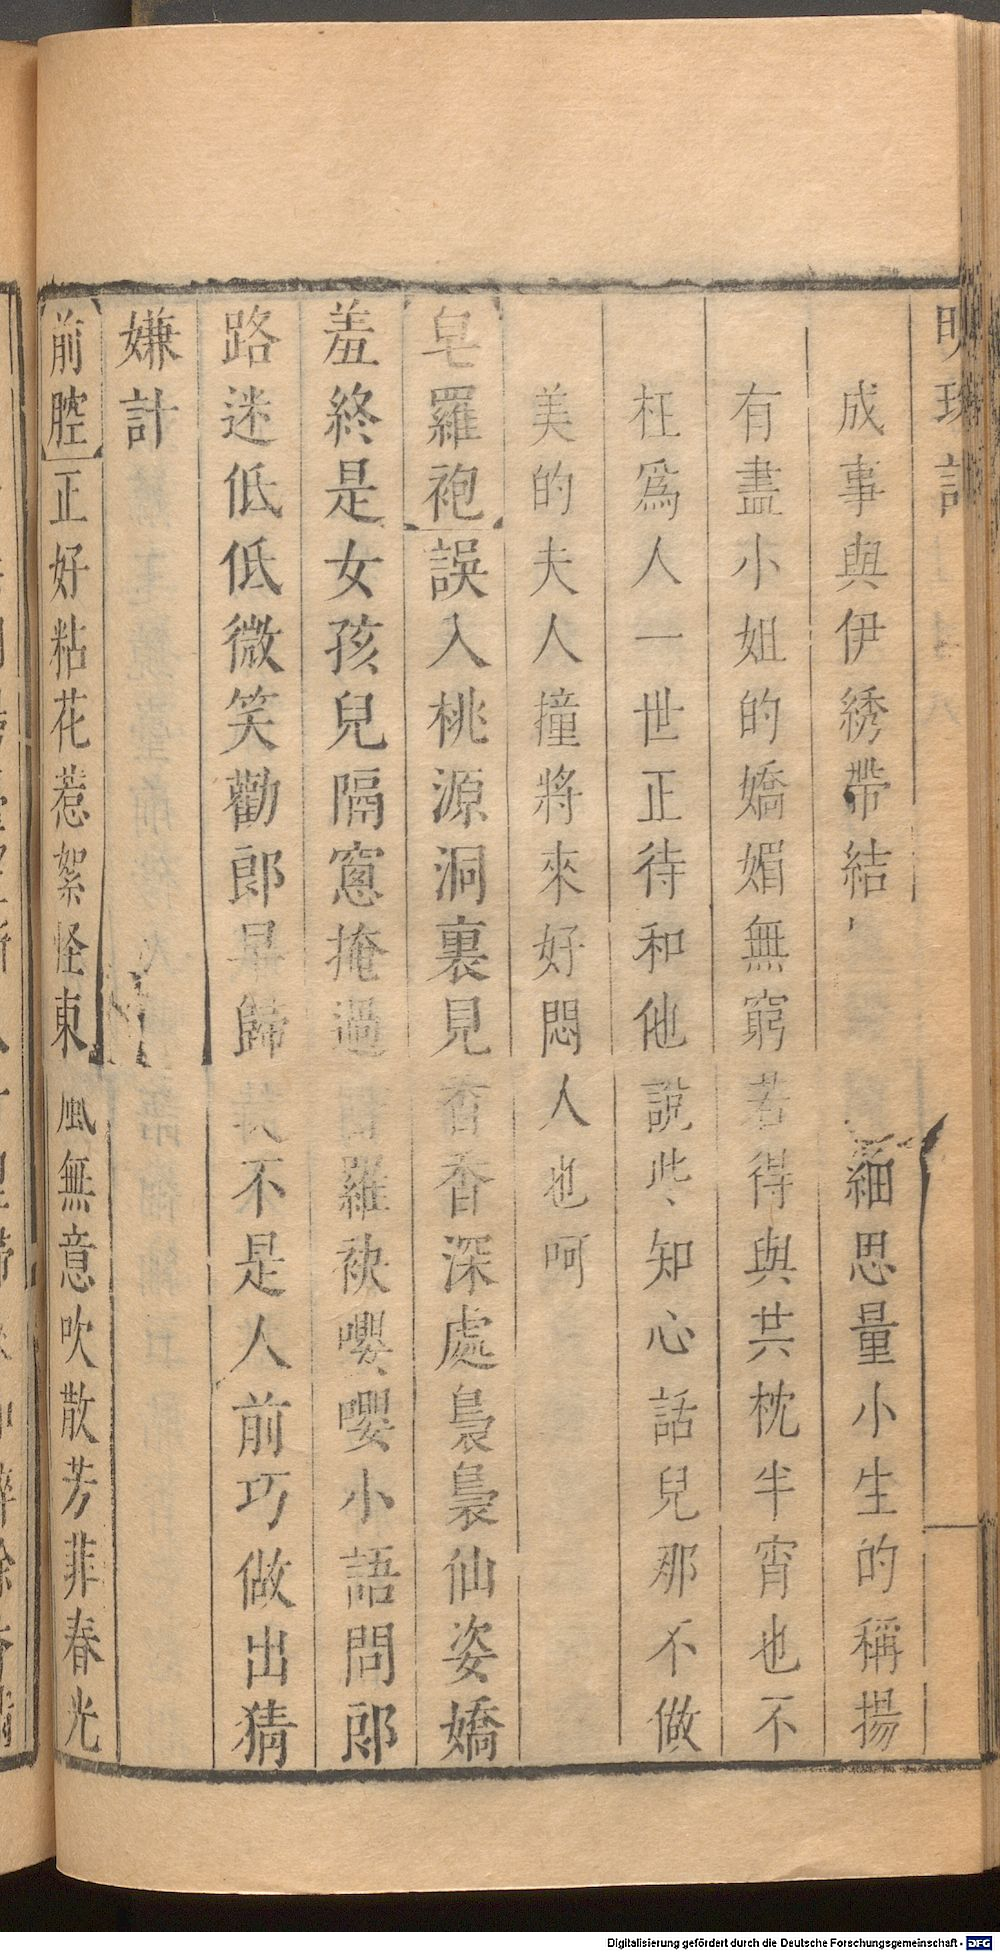 明珠記
成事與伊綉帶結細思量小生的稱揚
有盡小姐的嬌媚無窮若得與共枕半宵也不
枉爲人一世正待和他說些、知心話兒那不做
美的夫人撞將來好悶人也呵
皂羅袍誤入桃源洞裏見杳香深處裊裊仙姿嬌
羞終是女孩兒隔窻掩過羅袂嚶、嚶小語問郎
路迷低低微笑勸郎早歸不是人前巧做出猜
嫌計
前腔正好粘花惹絮怪東風無意吹散芳菲春光
Digitalisierung gefördert durch die Deutsche Forschungsgemeinschaft - DFG